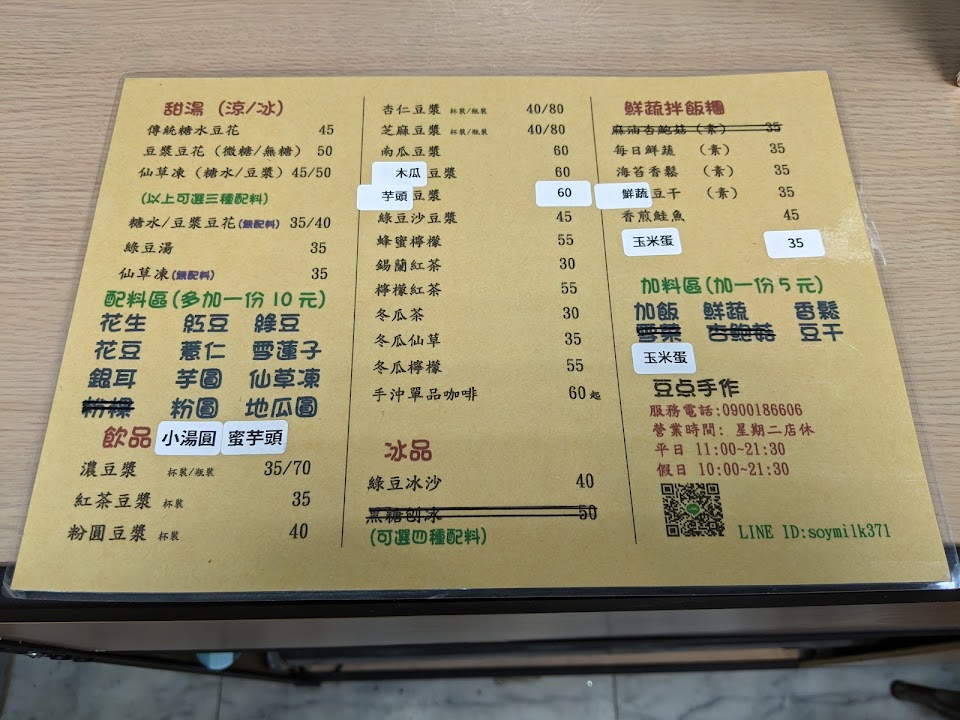 甜湯（涼/冰）
傳統糖水豆花 45
豆漿豆花（微糖/無糖）50
仙草凍（糖水/豆漿）45/50
(以上可選三種配料)
糖水/豆漿豆花(無配料) 35/40
綠豆湯 35
仙草凍(無配料) 35
配料區(多加一份10元)
花生 紅豆 綠豆
花豆 薏仁 雪蓮子
銀耳 芋圓 仙草凍
粉粿 粉圓 地瓜圓
小湯圓 蜜芋頭
飲品
濃豆漿 杯裝/瓶裝 35/70
紅茶豆漿 杯裝 35
粉圓豆漿 杯裝 40
杏仁豆漿 杯裝/瓶裝 40/80
芝麻豆漿 杯裝/瓶裝 40/80
南瓜豆漿 60
木瓜豆漿 60
芋頭豆漿 60
綠豆沙豆漿 45
蜂蜜檸檬 55
錫蘭紅茶 30
檸檬紅茶 55
冬瓜茶 30
冬瓜仙草 35
冬瓜檸檬 55
手沖單品咖啡 60起
冰品
綠豆冰沙 40
黑糖刨冰 50
(可選四種配料)
鮮蔬拌飯糰
麻油杏鮑菇（素） 35
每日鮮蔬 （素） 35
海苔香鬆 （素） 35
鮮蔬豆干 （素） 35
香煎鮭魚 45
玉米蛋 35
加料區(加一份5元)
加飯 鮮蔬 香鬆
雪菜 杏鮑菇 豆干
玉米蛋
豆点手作
服務電話:0900186606
營業時間: 星期二店休
平日 11:00~21:30
假日 10:00~21:30
LINE ID:soymilk371